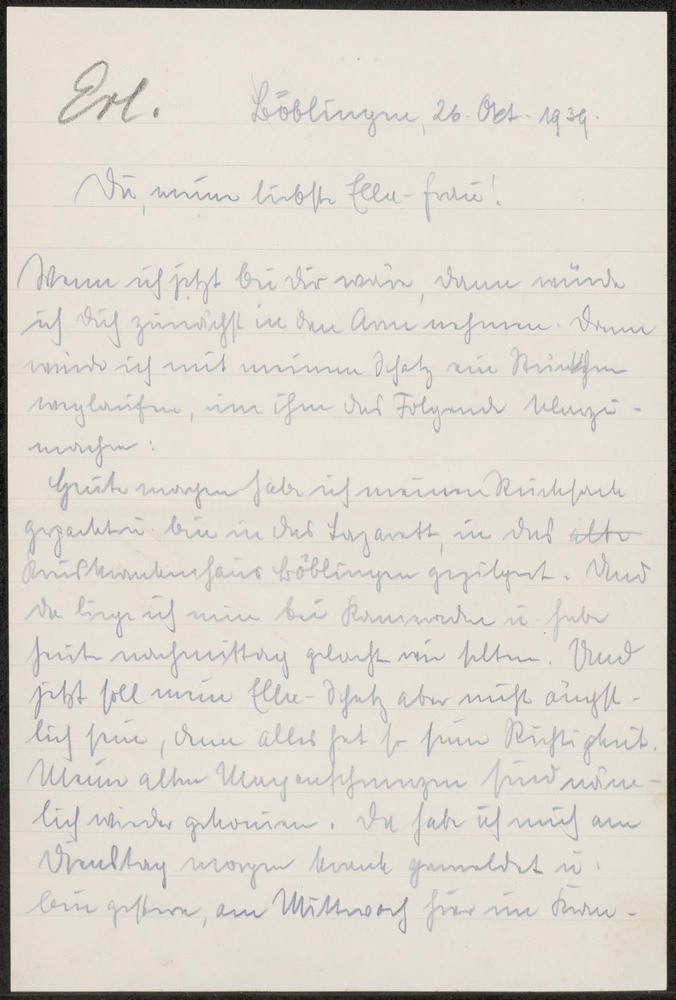 Erl.
Böblingen, 26. Okt. 1939.
Du, meine liebste Elle-Frau!
Wenn ich jetzt bei Dir wäre, dann würde
ich Dich zunächst in den Arm nehmen. Dann
würde ich mit meinem Schatz ein Stückchen
weglaufen, um ihm das Folgende klarzu-
machen:
Heute morgen habe ich meinen Rucksack
gepackt u. bin in das Lazarett, in das alte
Kreiskrankenhaus Böblingen gepilgert. Und
da liege ich nun bei Kameraden u. habe
heute nachmittag gelacht wie selten. Und
jetzt soll mein Elle-Schatz aber nicht ängst-
lich sein, denn alles hat so seine Richtigkeit.
Meine alten Magenschmerzen sind näm-
lich wieder gekommen. Da habe ich mich am
Dienstag morgen krank gemeldet u.
bin gestern, am Mittwoch hier im